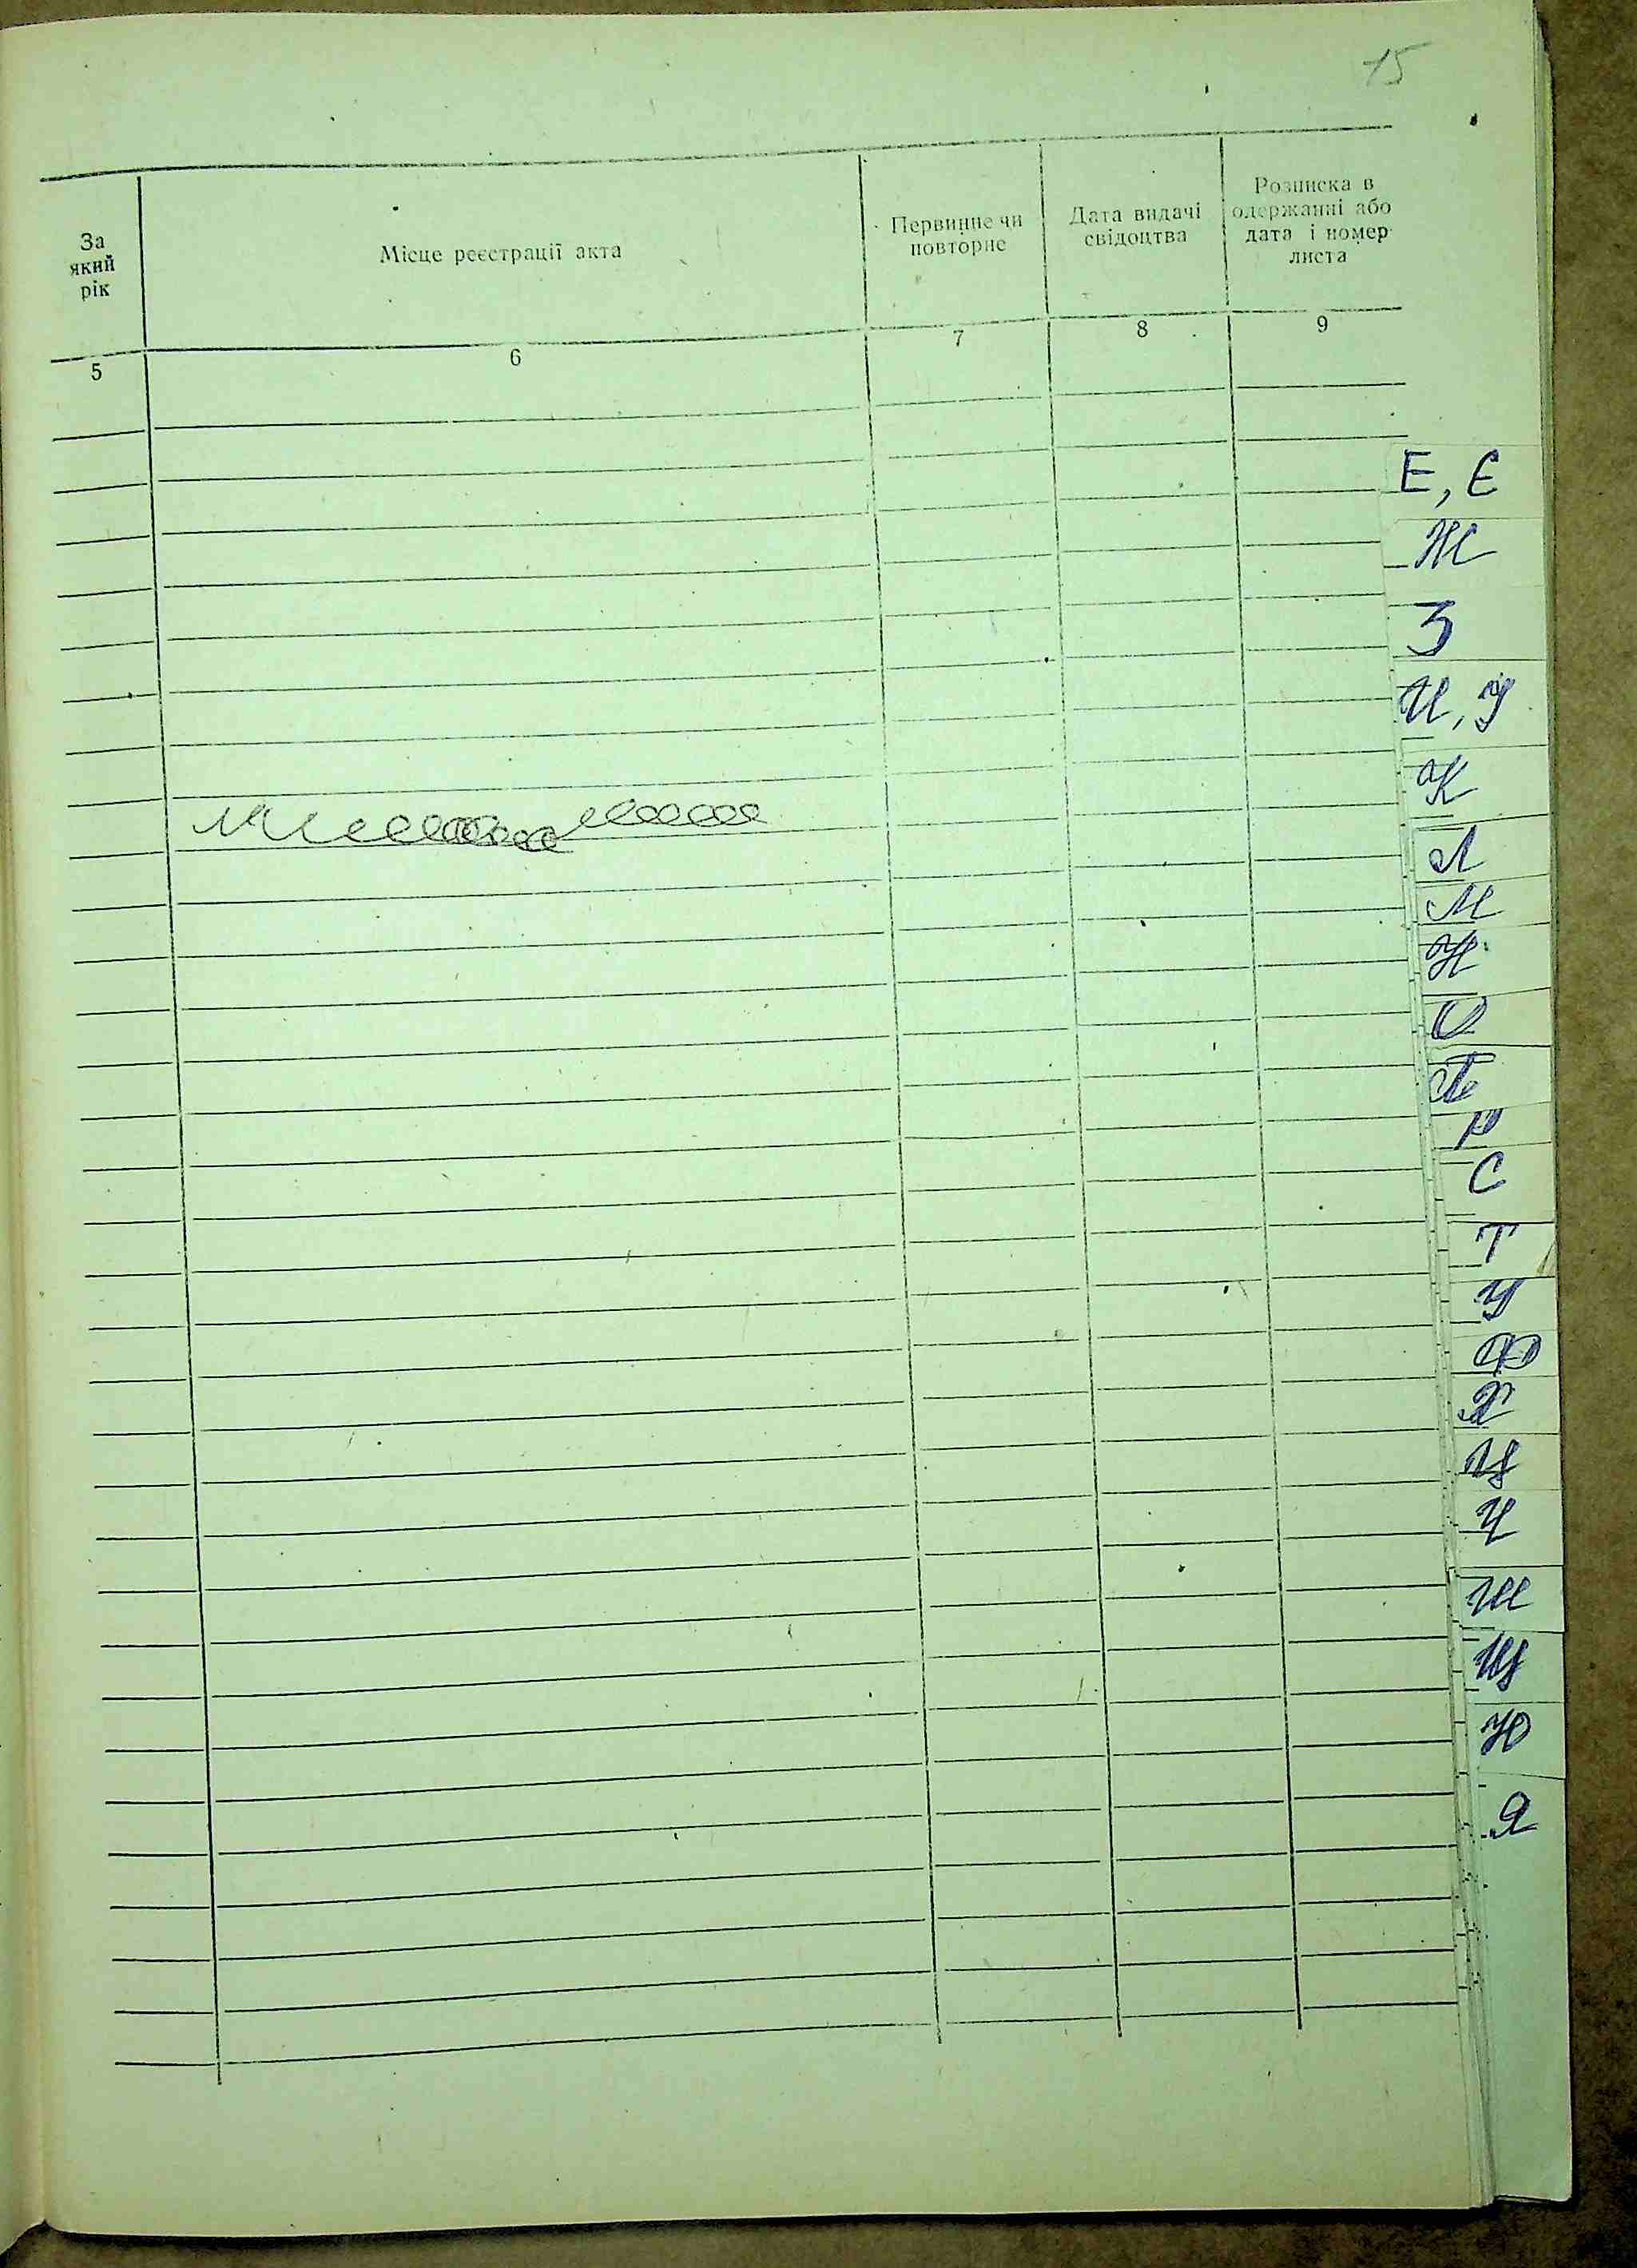 15
За який рік
Місце реєстрації акта
Первинне чи повторне
Дата видачі свідоцтва
Розписка в одержанні або дата і номер листа
5
6
7
8
9
Е, Є
Ж
З
И, У
К
Л
М
Н
О
П
Р
С
Т
У
Ф
Х
Ц
Ч
Ш
Щ
Ю
Я